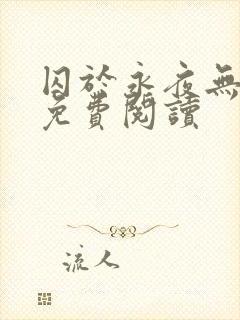 囚於永夜無
免費閱讀
流人